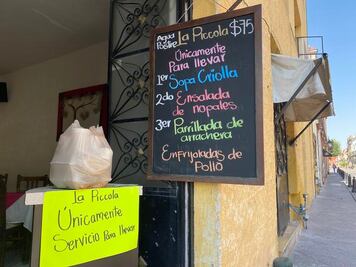 Agua
Postre
La Piccola $75
Únicamente
Para llevar
1er Sopa Criolla
2do Ensalada
de nopales
3er Parrillada de
arrachera
Enfrijoladas de
Pollo
La Piccola
Únicamente
Servicio Para llevar